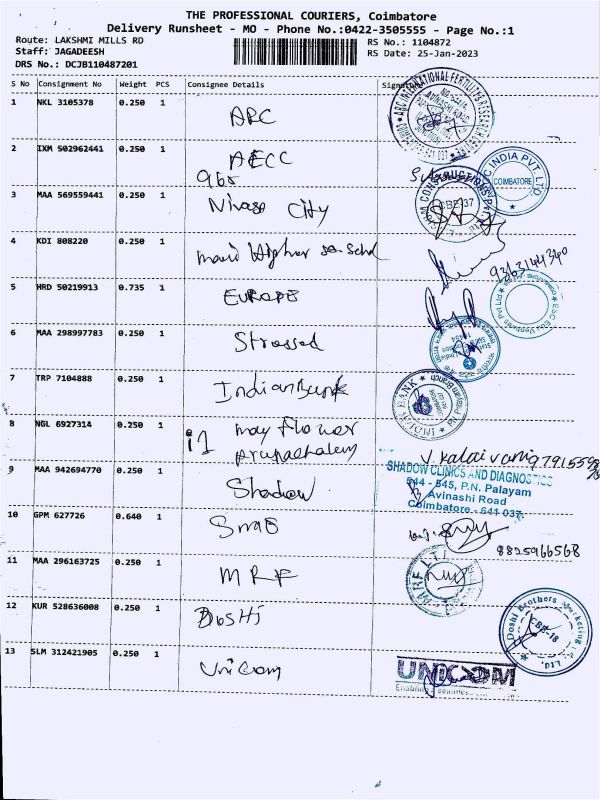 THE PROFESSIONAL COURIERS, Coimbatore
Delivery Runsheet - MO - Phone No.:0422-3505555 - Page No.:1
Route: LAKSHMI MILLS RD
RS No.: 1104872
Staff: JAGADEESH
RS Date: 25-Jan-2023
DRS No.: DCJB110487201
S No Consignment No Weight PCS Consignee Details Signature
1 NKL 3105378 0.250 1 ARC
2 IXM 502962441 0.250 1 AECC
965
3 MAA 569559441 0.250 1 Nivasa City
4 KDI 808220 0.250 1
9363144340
5 HRD 50219913 0.735 1 EUROPE
6 MAA 298997783 0.250 1
7 TRP 7104888 0.250 1 Indian Bank
8 NGL 6927314 0.250 1 i1 may Flower
V. Kalaivani
9 MAA 942694770 0.250 1 Shadow
SHADOW CLINICS AND DIAGNOSTICS
544 - 545, P.N. Palayam
Avinashi Road
Coimbatore - 641 037.
10 GPM 627726 0.640 1
8825966568
11 MAA 296163725 0.250 1 MRF
12 KUR 528636008 0.250 1 DosHi
Doshi Brothers Marketing
CBE-18
13 SLM 312421905 0.250 1 Unicom
UNICOM
INDIA PVT. LTD
COIMBATORE